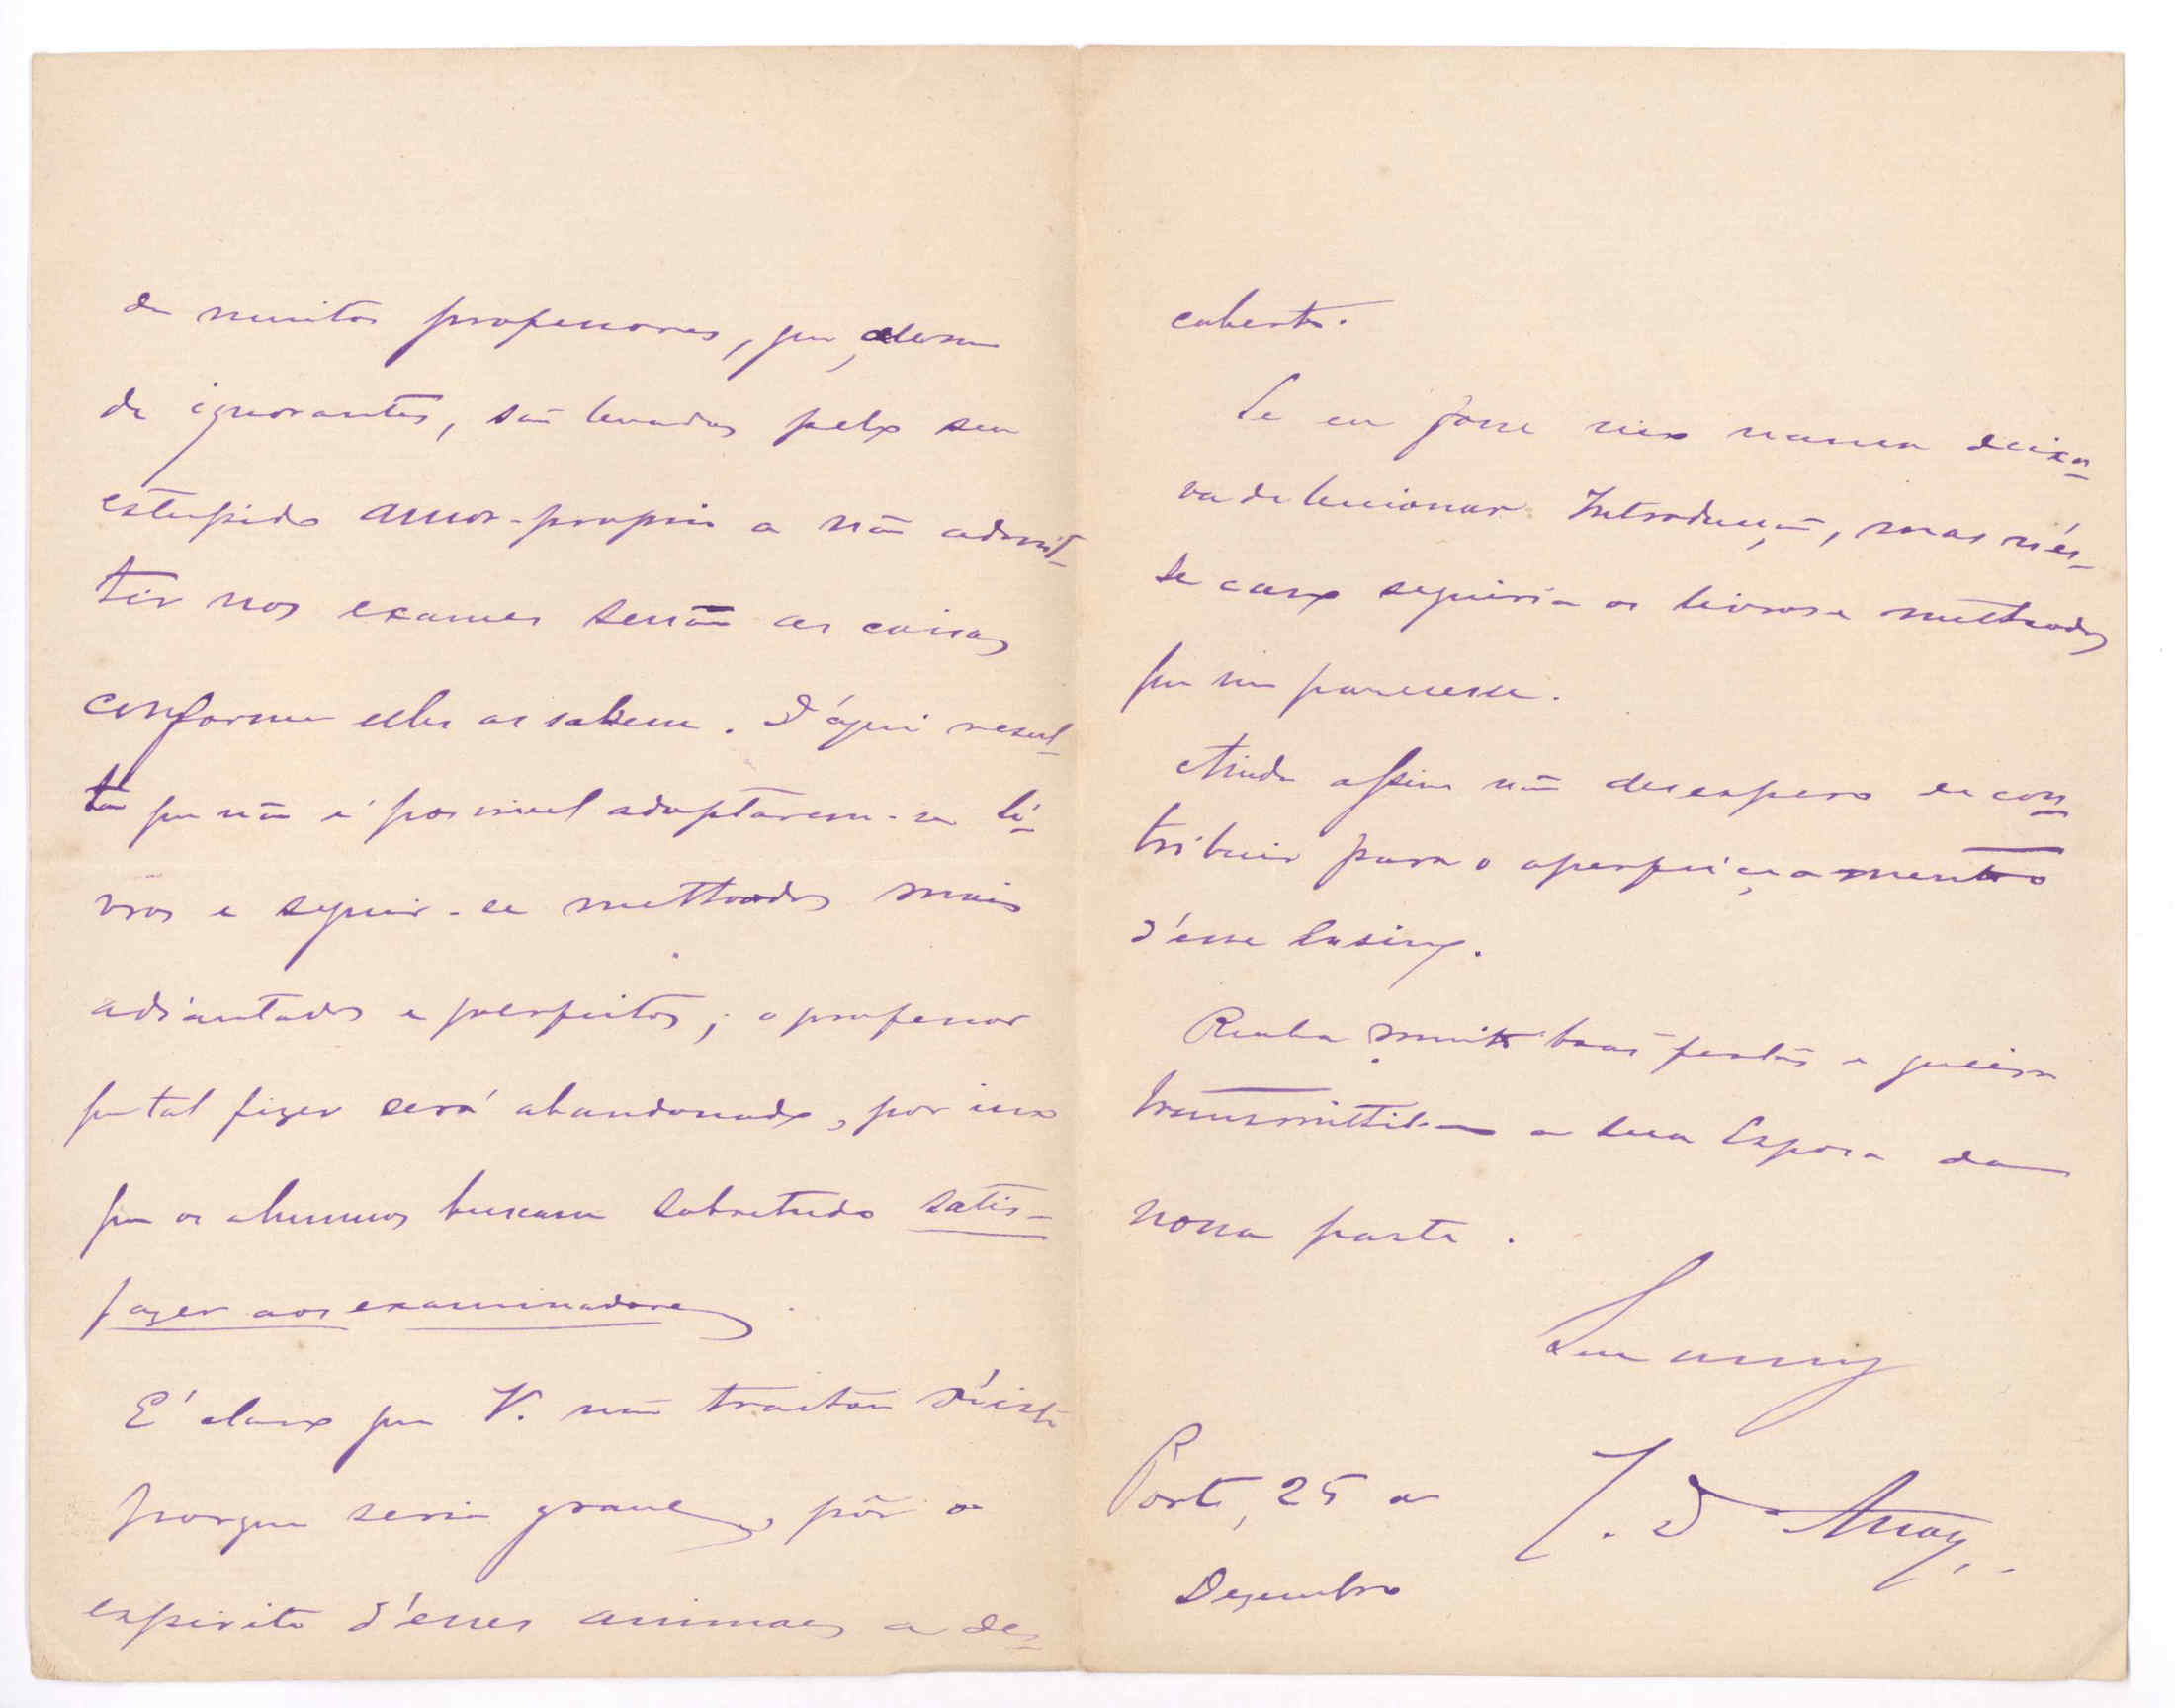 de muitos professores, que, alem
de ignorantes, são levados pelo seu
estupido amor-proprio a não admit-
tir nos exames senão as coisas
conforme elles as sabem. D'áqui resul-
ta que não é possivel adoptarem-se li-
vros e seguir-se methodos mais
adiantados e perfeitos; o professor
que tal fizer será abandonado, por isso
que os alumnos buscam sobretudo satis-
fazer aos examinadores.
É claro que V. não tractou d'isto
porque seria grave, pôr o
espirito d'esses animaes a des-
coberto.
Se eu fosse rico nunca deixa-
va de leccionar Introducção, mas n'és-
se caso seguiria os livros e methodos
que me parecesse.
Ainda assim não desespero de con-
tribuir para o aperfeiçoamento
d'esse ensino.
Receba muito boas festas e queira
transmittil-as a sua Esposa da
nossa parte.
Seu amigo
Porto, 25 de
Dezembro
J. D'